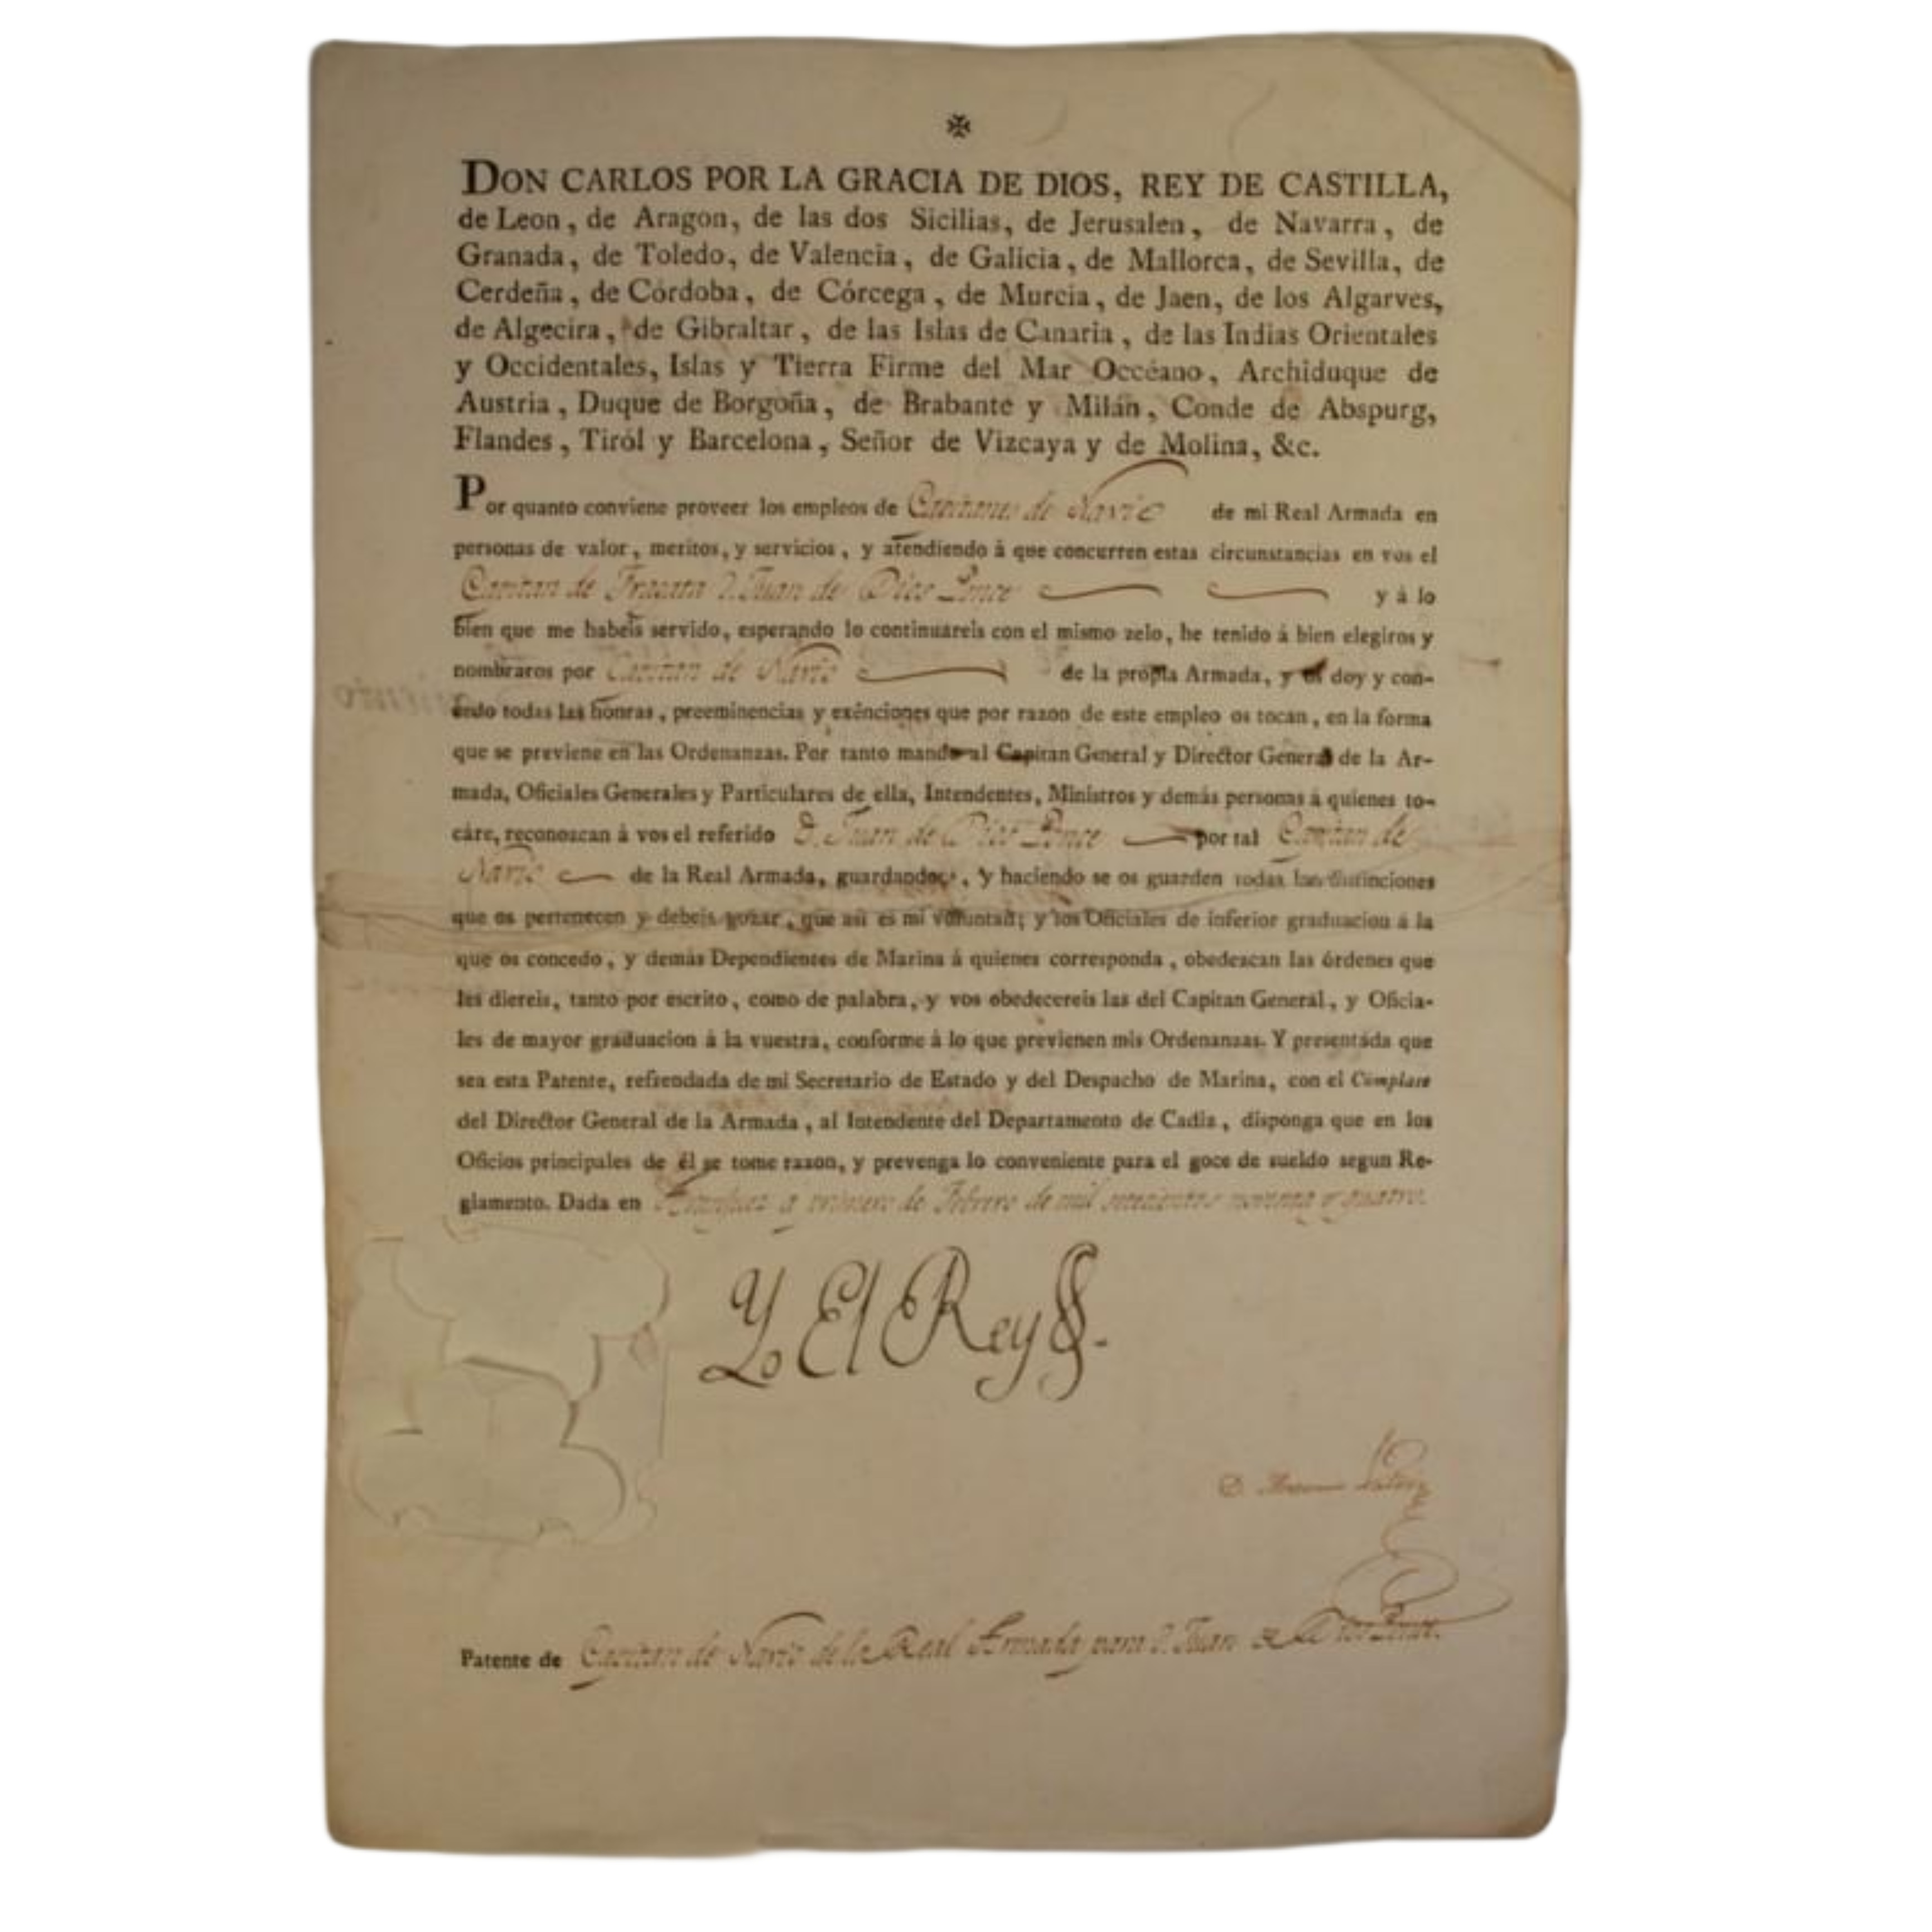 DON CARLOS POR LA GRACIA DE DIOS, REY DE CASTILLA,
de Leon, de Aragon, de las dos Sicilias, de Jerusalen, de Navarra, de
Granada, de Toledo, de Valencia, de Galicia, de Mallorca, de Sevilla, de
Cerdeña, de Córdoba, de Córcega, de Murcia, de Jaen, de los Algarves,
de Algecira, de Gibraltar, de las Islas de Canaria, de las Indias Orientales
y Occidentales, Islas y Tierra Firme del Mar Occéano, Archiduque de
Austria, Duque de Borgoña, de Brabante y Milán, Conde de Abspurg,
Flandes, Tiról y Barcelona, Señor de Vizcaya y de Molina, &c.
Por quanto conviene proveer los empleos de Capitanes de Navio de mi Real Armada en
personas de valor, meritos, y servicios, y atendiendo á que concurren estas circunstancias en vos el
Capitan de Fragata D. Juan de Dios Ponce y á lo
bien que me habeis servido, esperando lo continuareis con el mismo zelo, he tenido á bien elegiros y
nombraros por Capitan de Navio de la propia Armada, y os doy y con-
cedo todas las honras, preeminencias y exênciones que por razon de este empleo os tocan, en la forma
que se previene en las Ordenanzas. Por tanto mando al Capitan General y Director General de la Ar-
mada, Oficiales Generales y Particulares de ella, Intendentes, Ministros y demás personas á quienes to-
cáre, reconozcan á vos el referido D. Juan de Dios Ponce por tal Capitan de
Navio de la Real Armada, guardandoos, y haciendo se os guarden todas las distinciones
que os pertenecen y debeis gozar, que asi es mi voluntad; y los Oficiales de inferior graduacion á la
que os concedo, y demás Dependientes de Marina á quienes corresponda, obedezcan las órdenes que
les diereis, tanto por escrito, como de palabra, y vos obedecereis las del Capitan General, y Oficia-
les de mayor graduacion á la vuestra, conforme á lo que previenen mis Ordenanzas. Y presentáda que
sea esta Patente, refrendada de mi Secretario de Estado y del Despacho de Marina, con el Cúmplase
del Director General de la Armada, al Intendente del Departamento de Cadiz, disponga que en los
Oficios principales de él se tome razon, y prevenga lo conveniente para el goce de sueldo segun Re-
glamento. Dada en Aranjuez a primero de Febrero de mil setecientos noventa y quatro.
Yo El Rey
D.
Patente de Capitan de Navio de la Real Armada para D. Juan de Dios Ponce.